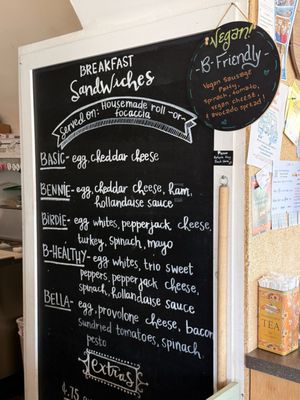 BREAKFAST
Sandwiches
Served on: Housemade roll -or-
focaccia
BASIC- egg, cheddar cheese
BENNIE- egg, cheddar cheese, ham,
hollandaise sauce
BIRDIE- egg whites, pepperjack cheese,
turkey, spinach, mayo
B-HEALTHY- egg whites, trio sweet
peppers, pepperjack cheese,
spinach, hollandaise sauce
BELLA- egg, provolone cheese, bacon
sundried tomatoes, spinach,
pesto
extras
Vegan!
B-Friendly
Vegan Sausage
Patty,
spinach, tomato,
vegan cheese,
& avocado spread!
TEA